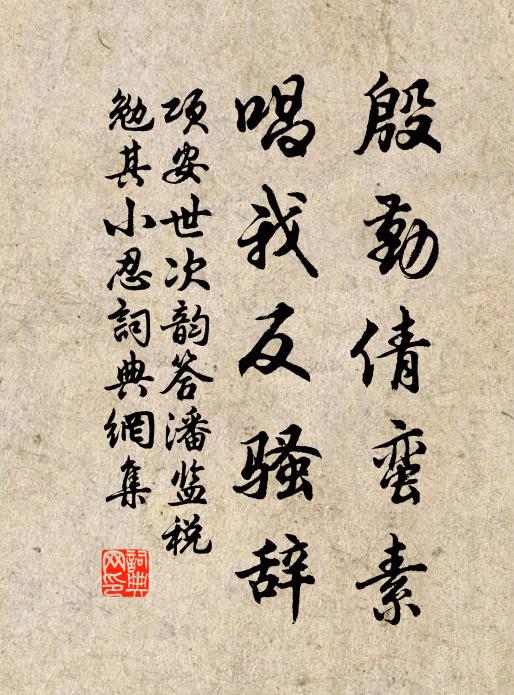 殷勤倩蛮素
唱我反骚辞
项安世次韵答潘监税
勉其小忍詞典網集
詞典网印